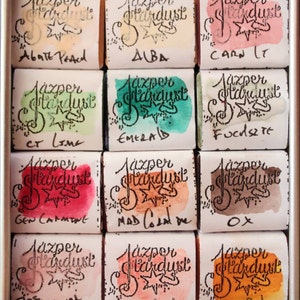 Jazper
Stardust
Jazper
Stardust
ALBA
Jazper
Stardust
Jazper
Stardust
CT LIME
Jazper
Stardust
EMERALD
Jazper
Stardust
FUCHSITE
Jazper
Stardust
GEN CARMINE
Jazper
Stardust
Jazper
Stardust
OX
Jazper
Stardust
Jazper
Stardust
Jazper
Stardust